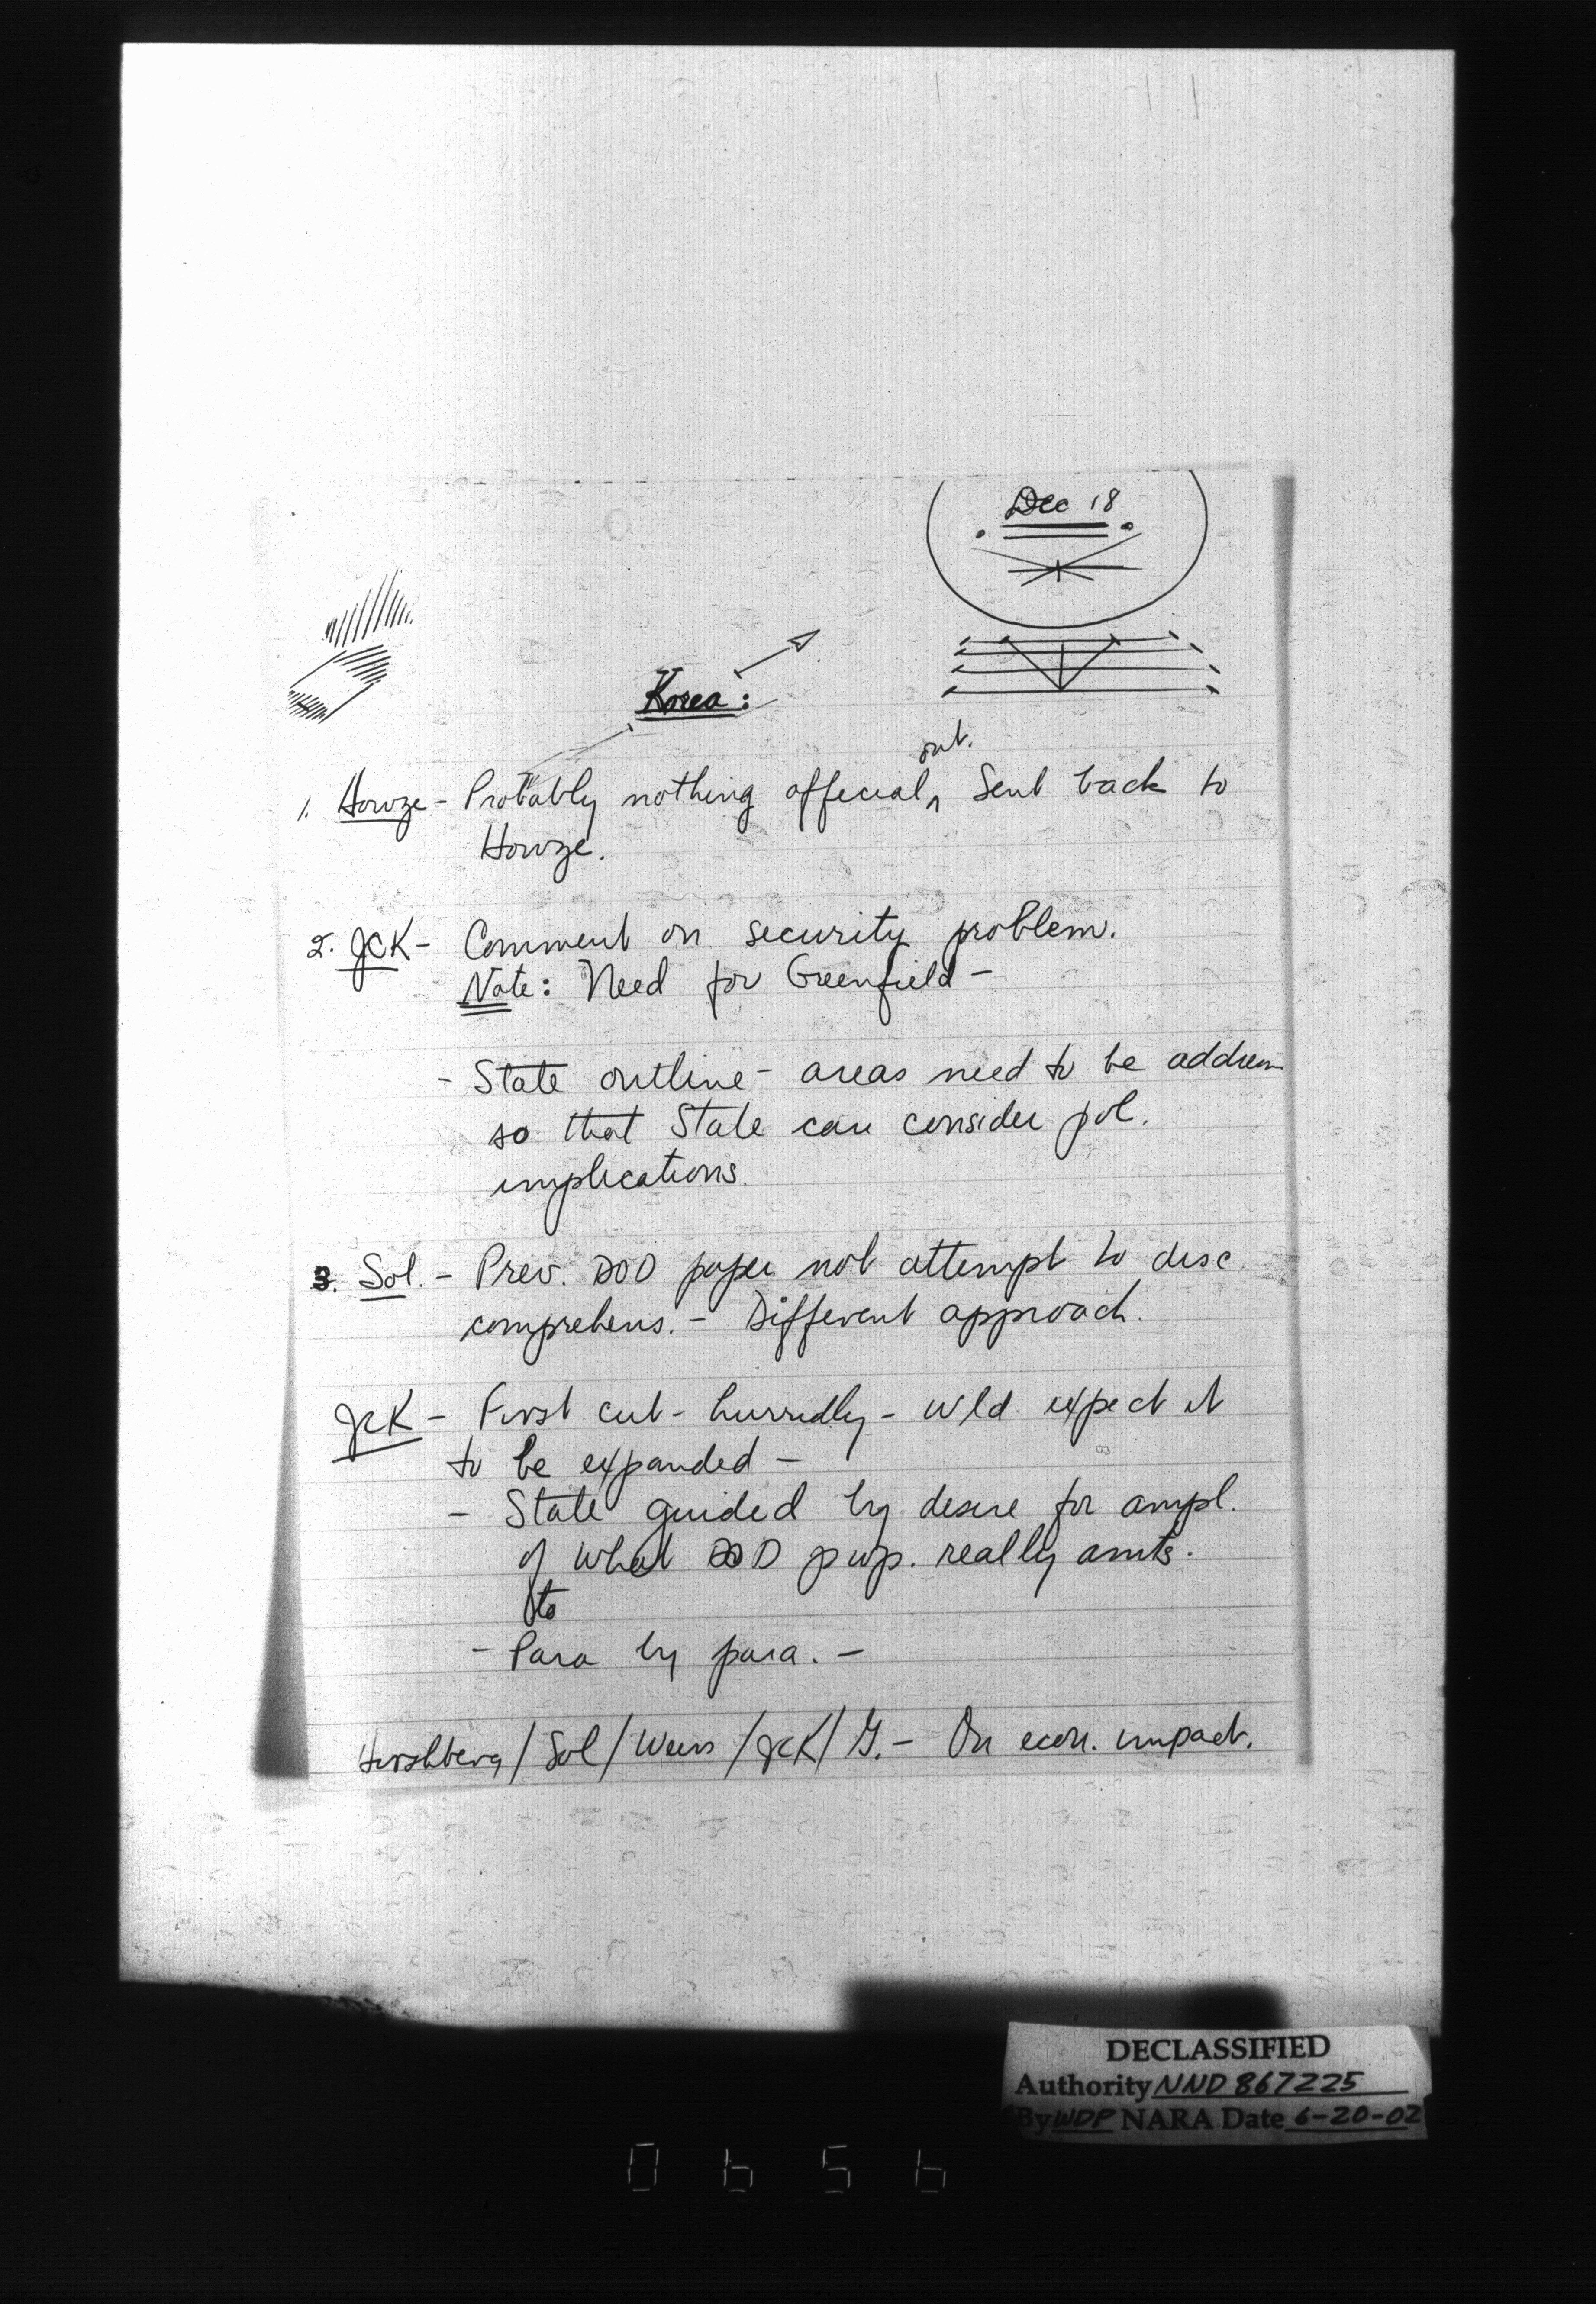 Dec 18
Korea:
out.
1. Howze - Probably nothing official, Sent back to
Howze.
2. JCK - Comment on security problem.
Note: Need for Greenfield -
- State outline - areas need to be addres
so that State can consider pol.
implications.
3. Sol. - Prev. DOD paper not attempt to disc.
comprehens. - Different approach.
JCK - First cut - hurridly - wld expect it
to be expanded -
- State guided by desire for ampl.
of what DOD prop. really amts.
to
- Para by para. -
Hirshberg / Sol / Weiss / JCK / G. - On econ. impact.
DECLASSIFIED
Authority NND 867225
By WDP NARA Date 6-20-02
0656